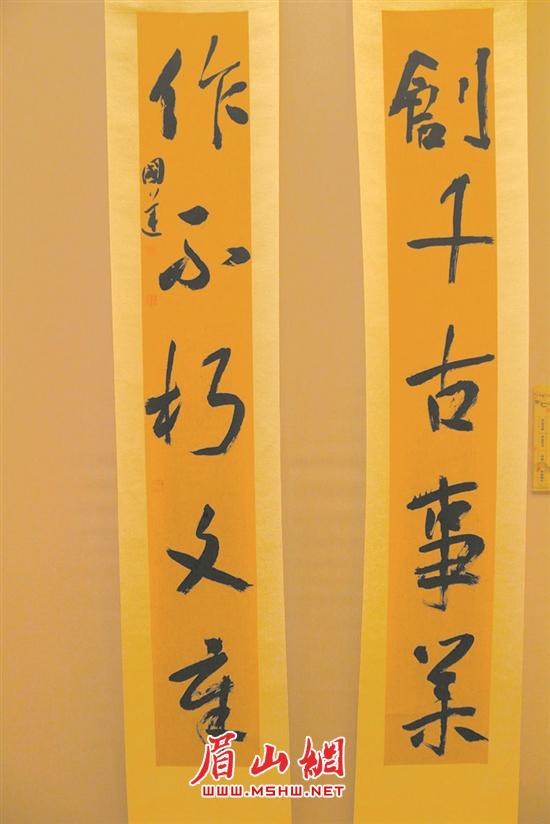 創千古事業
作不朽文章
國蓮
眉山網
WWW.MSHW.NET